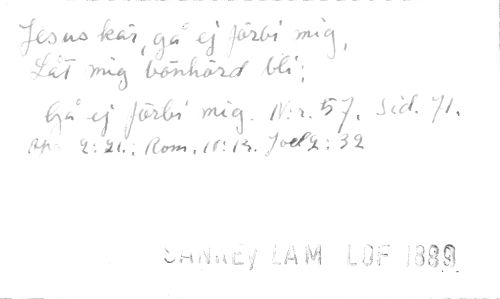 Jesus kär, gå ej förbi mig,
Låt mig bönhörd bli;
Gå ej förbi mig. N:r. 57. Sid. 71.
Ap. 2:21.; Rom. 10:13. Joel 2:32
SANKEY LAM LOF 1889